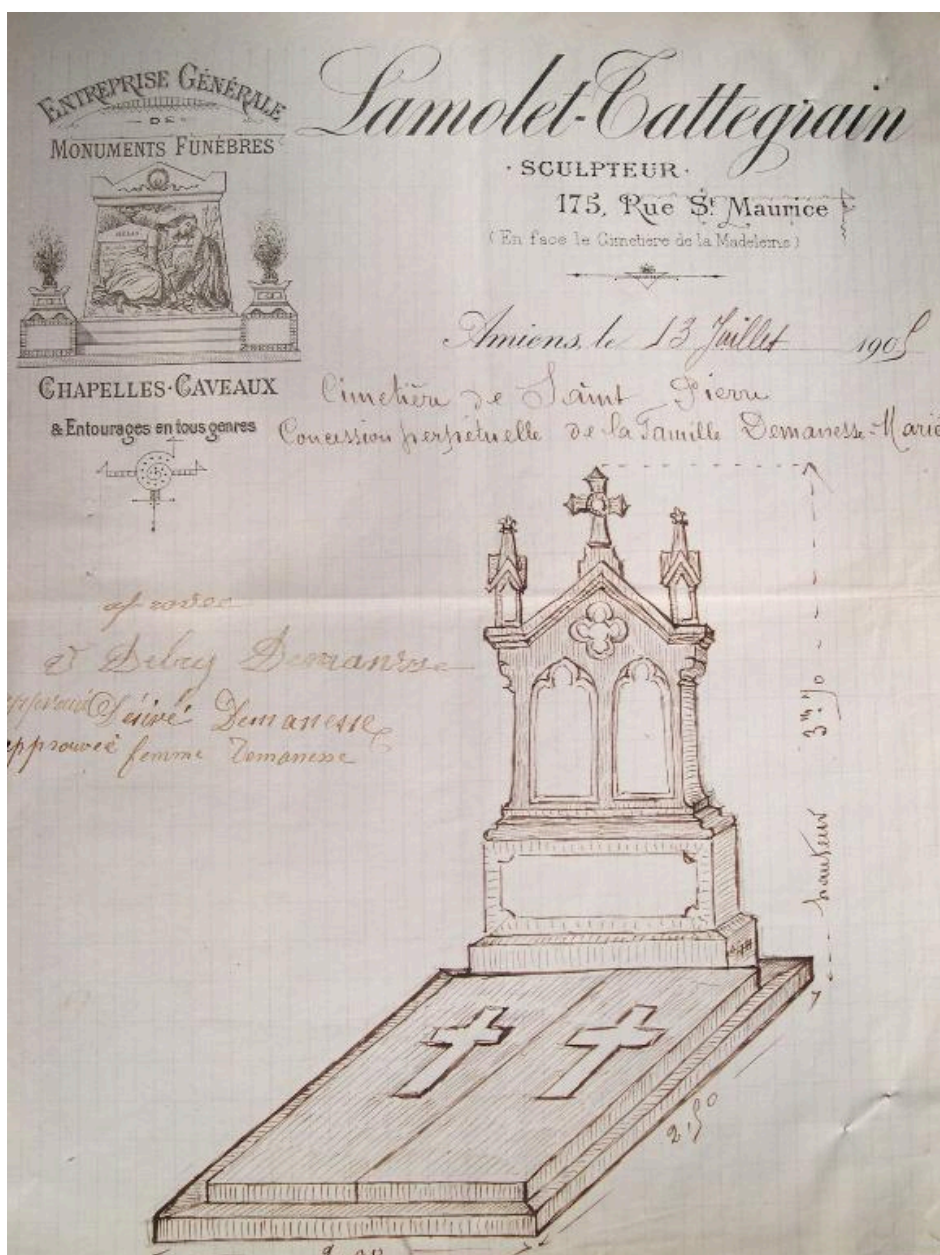 ENTREPRISE GÉNÉRALE
DE
MONUMENTS FUNÈBRES
CHAPELLES·CAVEAUX
& Entourages en tous genres
Lamolet-Tattegrain
·SCULPTEUR·
175, Rue St Maurice
(En face le Cimetière de la Madeleine)
Amiens, le 13 Juillet 1905
Cimetière de Saint Pierre
Concession perpétuelle de la Famille Demanesse-Marie
Debry Demanesse
approuvé Désiré Demanesse
approuvée femme Demanesse
hauteur 3m,70
2.50